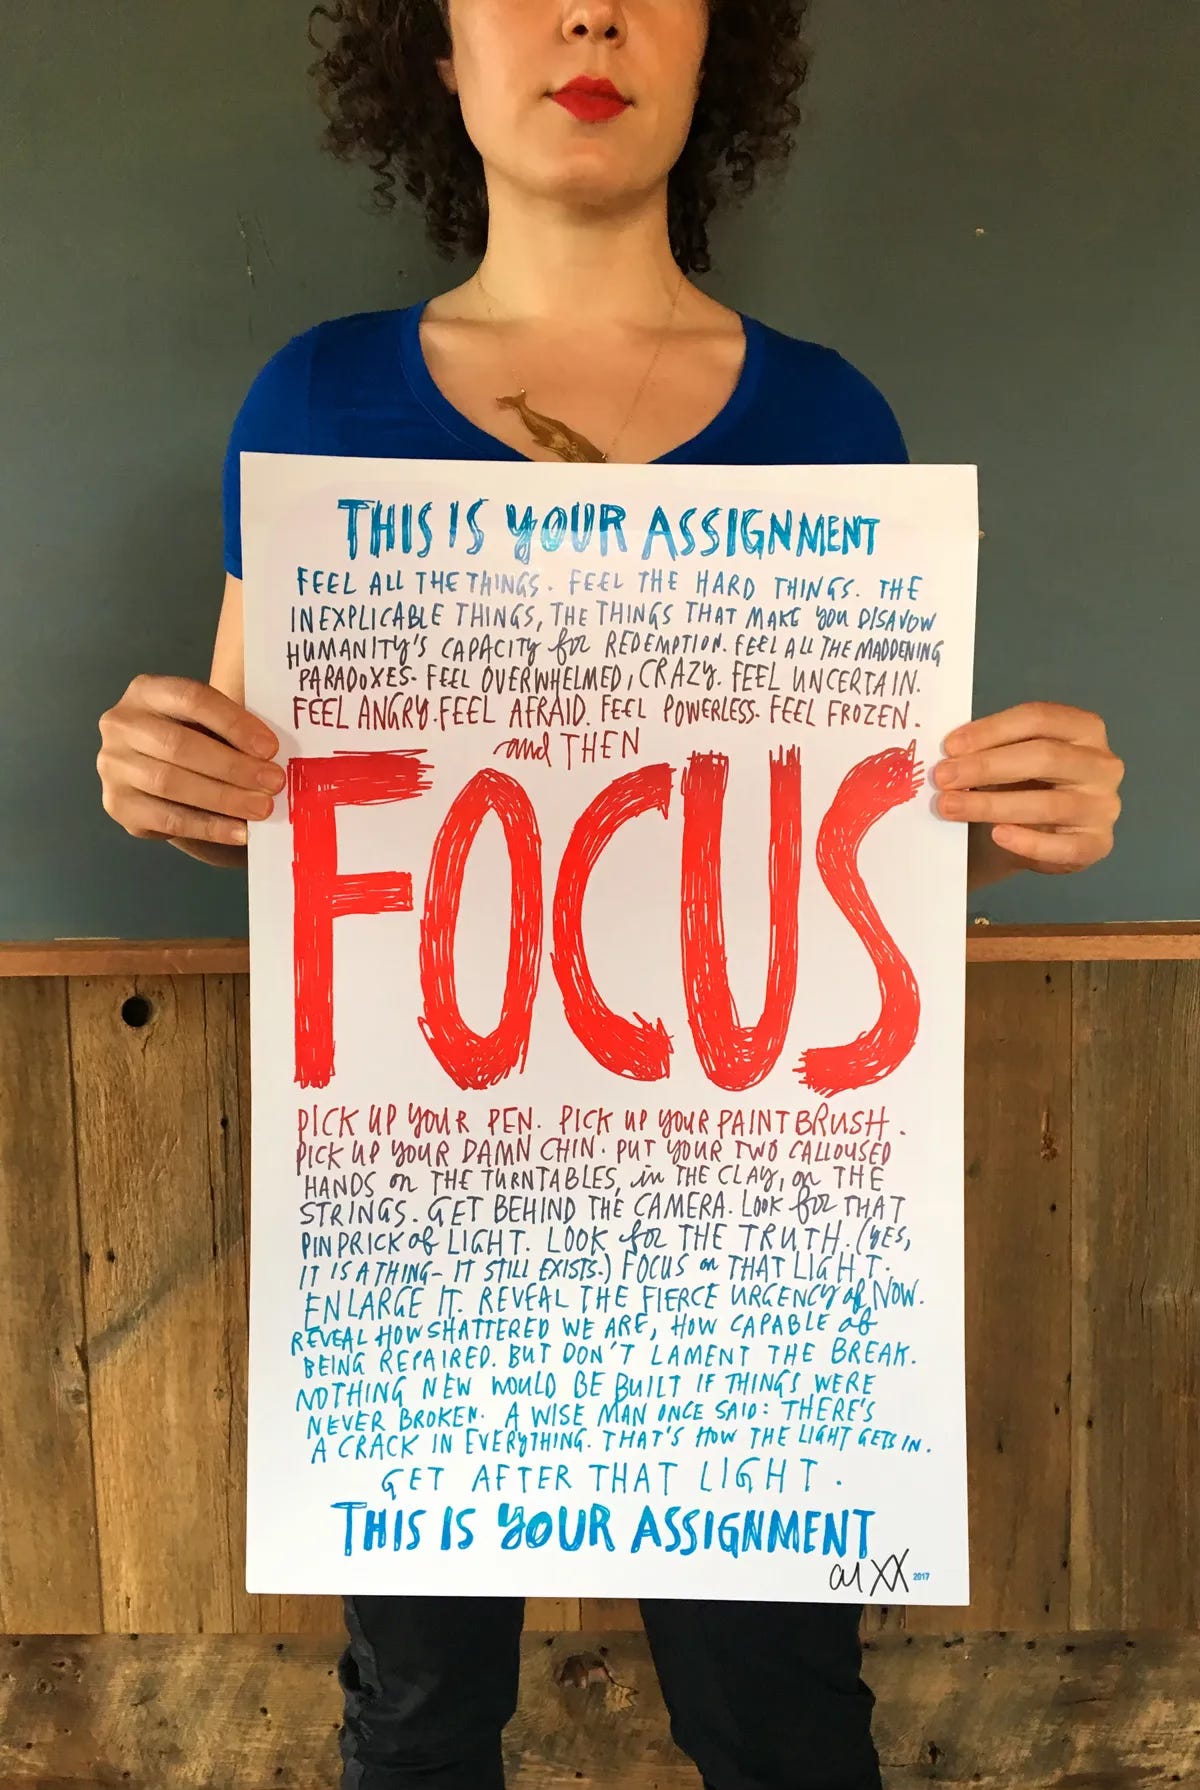 THIS IS YOUR ASSIGNMENT
FEEL ALL THE THINGS. FEEL THE HARD THINGS. THE
INEXPLICABLE THINGS, THE THINGS THAT MAKE YOU DISAVOW
HUMANITY'S CAPACITY for REDEMPTION. FEEL ALL THE MADDENING
PARADOXES. FEEL OVERWHELMED, CRAZY. FEEL UNCERTAIN.
FEEL ANGRY. FEEL AFRAID. FEEL POWERLESS. FEEL FROZEN.
and THEN
FOCUS
PICK UP YOUR PEN. PICK UP YOUR PAINTBRUSH.
PICK UP YOUR DAMN CHIN. PUT YOUR TWO CALLOUSED
HANDS on THE TURNTABLES, in THE CLAY, on THE
STRINGS. GET BEHIND THE CAMERA. LOOK for THAT
PINPRICK of LIGHT. LOOK for THE TRUTH. (YES,
IT IS A THING- IT STILL EXISTS.) FOCUS on THAT LIGHT.
ENLARGE IT. REVEAL THE FIERCE URGENCY of NOW.
REVEAL HOW SHATTERED WE ARE, HOW CAPABLE of
BEING REPAIRED. BUT DON'T LAMENT THE BREAK.
NOTHING NEW WOULD BE BUILT IF THINGS WERE
NEVER BROKEN. A WISE MAN ONCE SAID: THERE'S
A CRACK IN EVERYTHING. THAT'S HOW THE LIGHT GETS IN.
GET AFTER THAT LIGHT.
THIS IS YOUR ASSIGNMENT
XX 2017